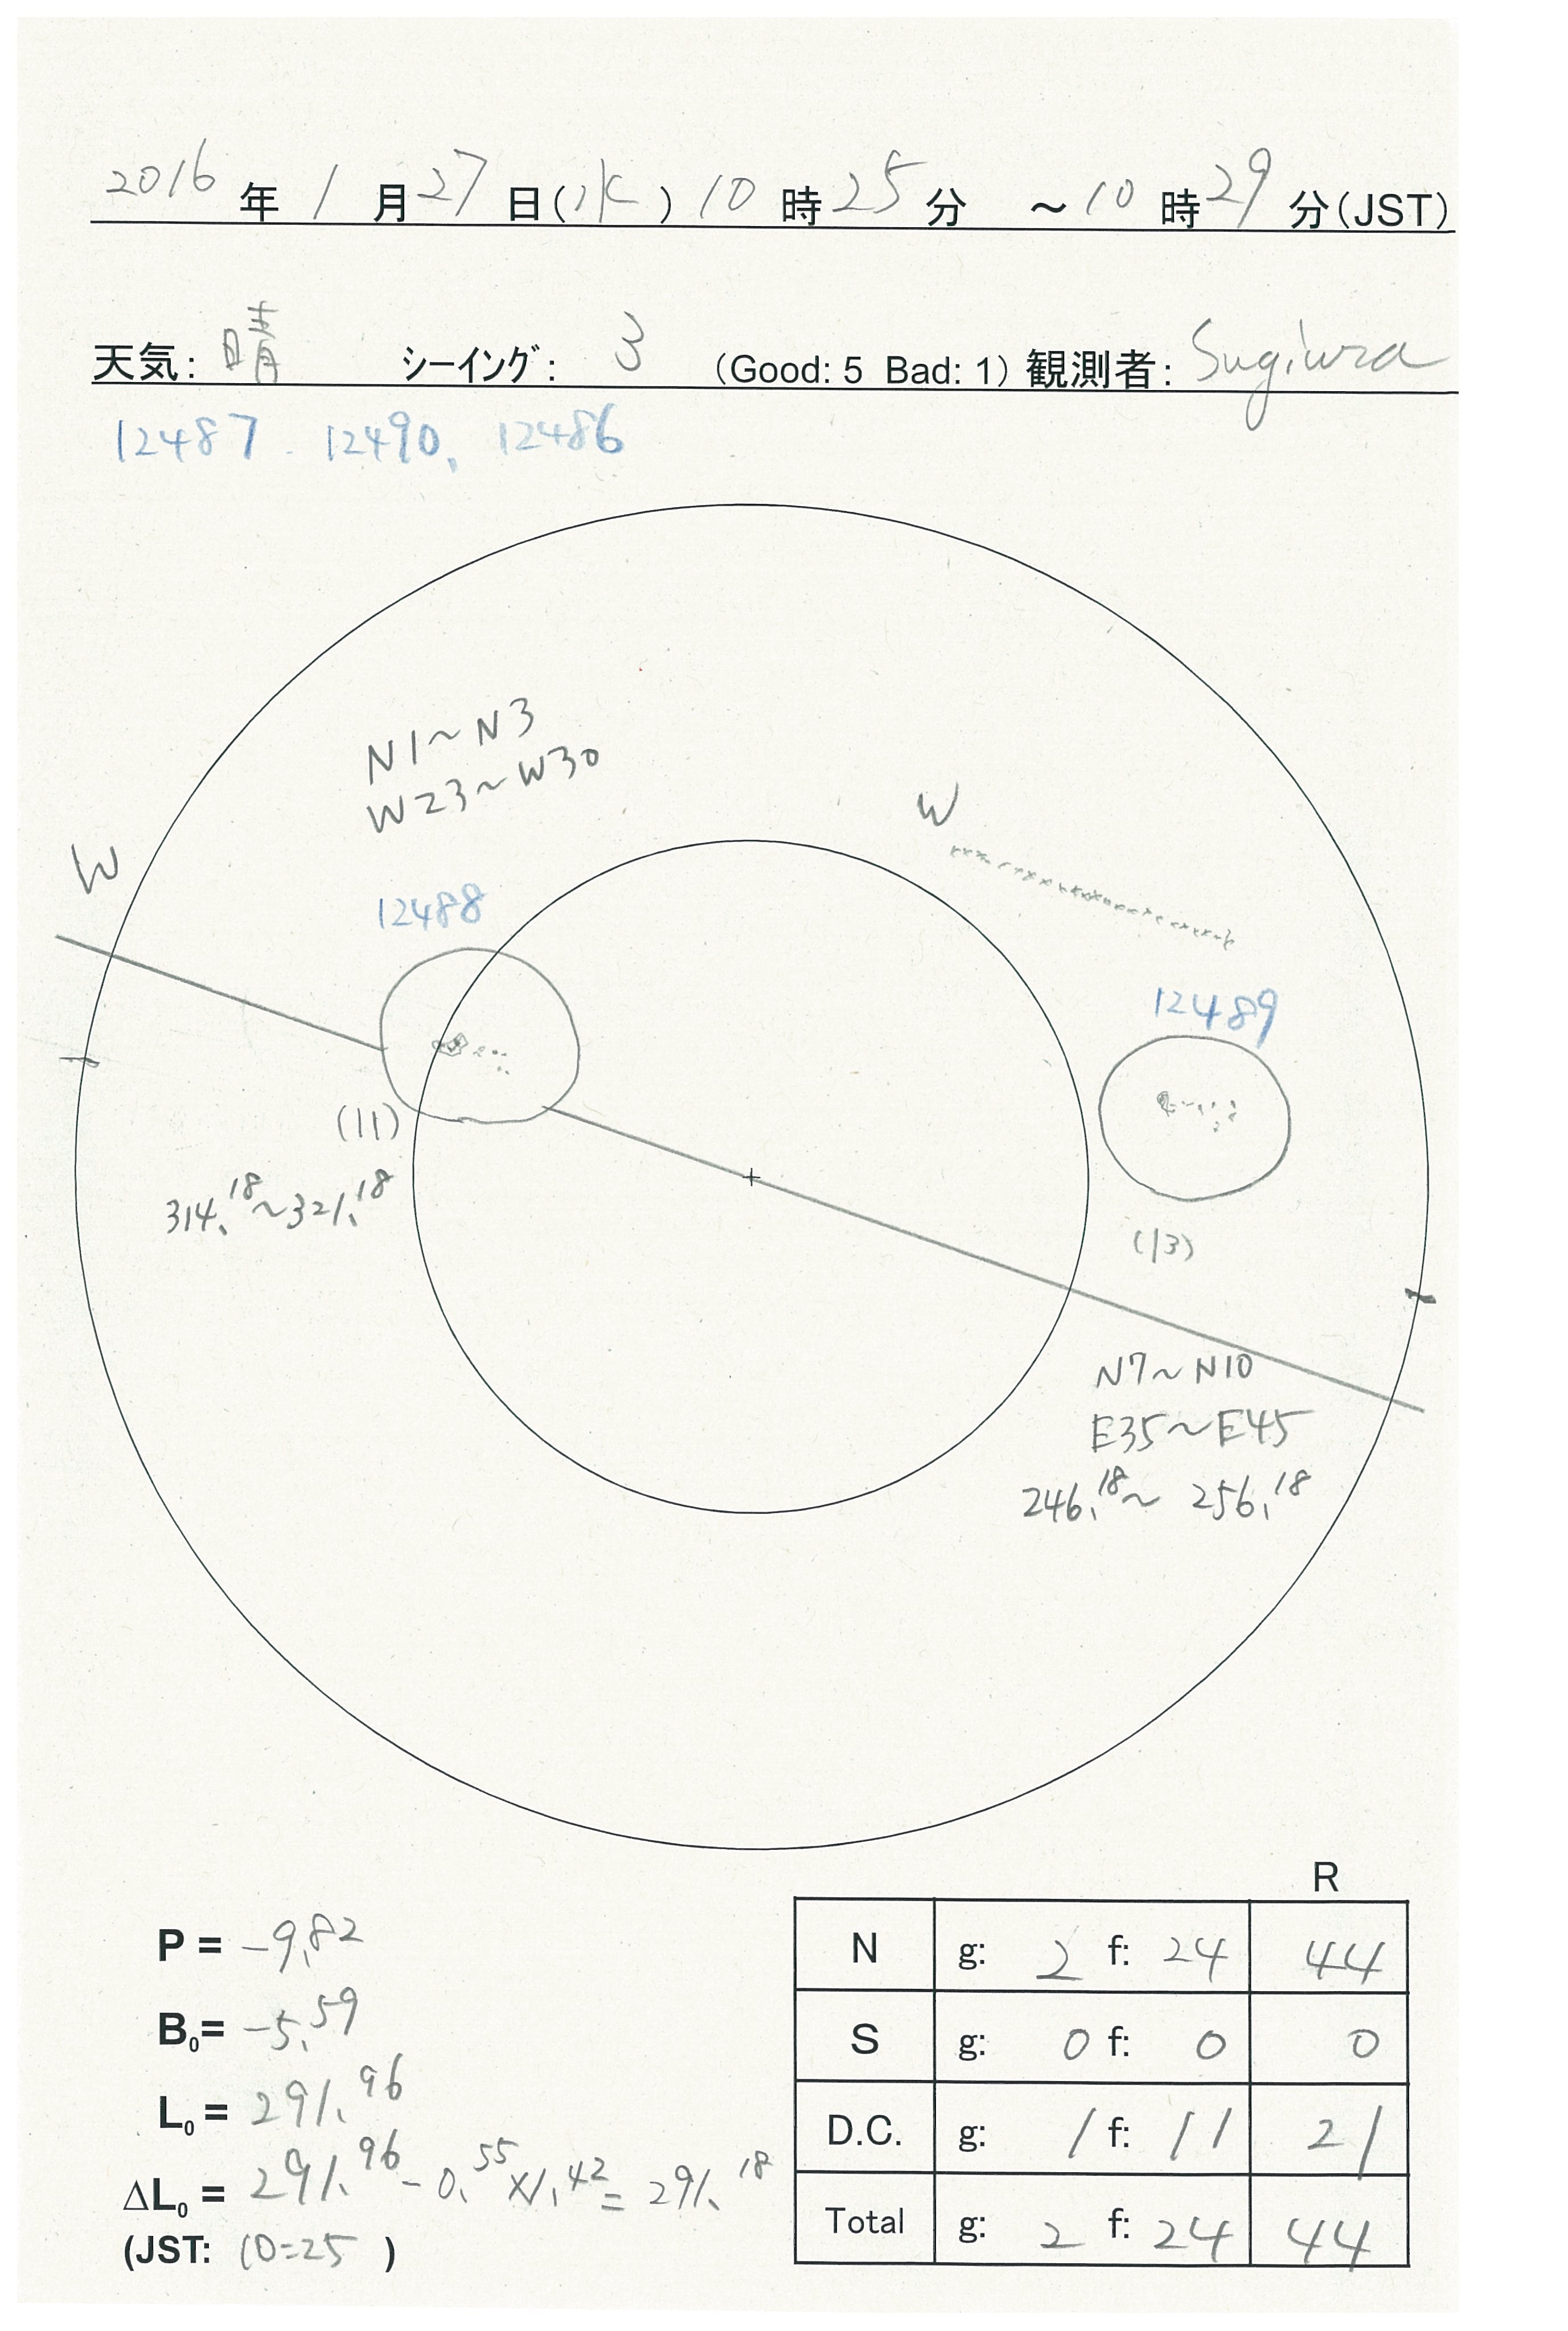 2016年1月27日(水)10時25分 ～10時29分(JST)
天気: 晴 シーイング: 3 (Good: 5 Bad: 1) 観測者: Sugiura
12487 12490、12486
N1～N3
W23～W30
W
W
12488
12489
(11)
314.18～321.18
(13)
N7～N10
E35～E45
246.18～256.18
R
P = -9.82
B0= -5.59
L0 = 291.96
ΔL0 = 291.96 - 0.55×1.42 = 291.18
(JST: 10=25 )
N g: 2 f: 24 44
S g: 0 f: 0 0
D.C. g: 1 f: 11 21
Total g: 2 f: 24 44